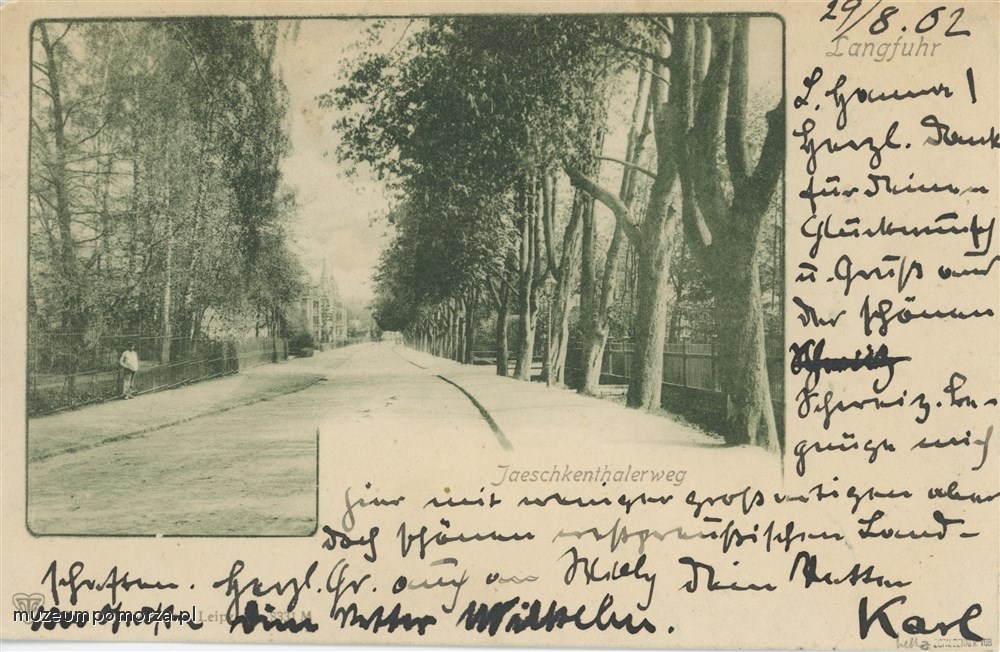 29/8.02
Langfuhr
L. Hanna!
Herzl. Dank
für Deinen
Glückwunsch
u. Gruß aus
der schönen
Schweiz. Be-
gnüge mich
Jaeschkenthalerweg
hier mit weniger großartigen aber
doch schönen westpreußischen Land-
schaften. Herzl. Gr. auch an Willy Dein Vetter
Karl
Dein Vetter Wilhelm.
muzeumpomorza.pl